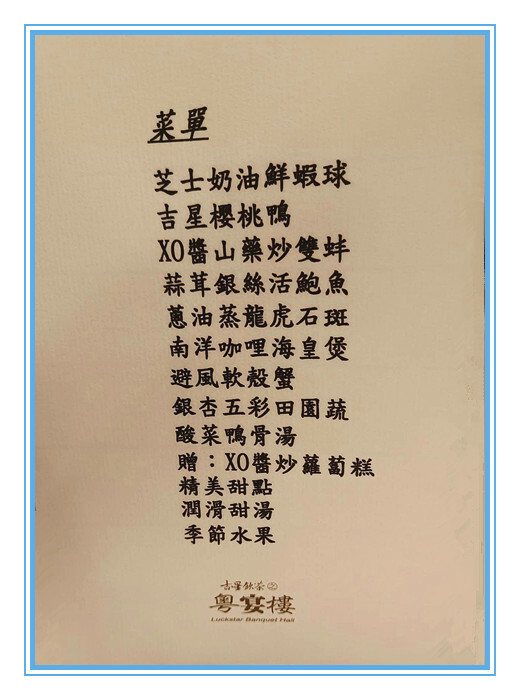 菜單
芝士奶油鮮蝦球
吉星櫻桃鴨
XO醬山藥炒雙蚌
蒜茸銀絲活鮑魚
蔥油蒸龍虎石斑
南洋咖哩海皇煲
避風軟殼蟹
銀杏五彩田園蔬
酸菜鴨骨湯
贈：XO醬炒蘿蔔糕
精美甜點
潤滑甜湯
季節水果
吉星飲茶之
粵宴樓
Luckstar Banquet Hall